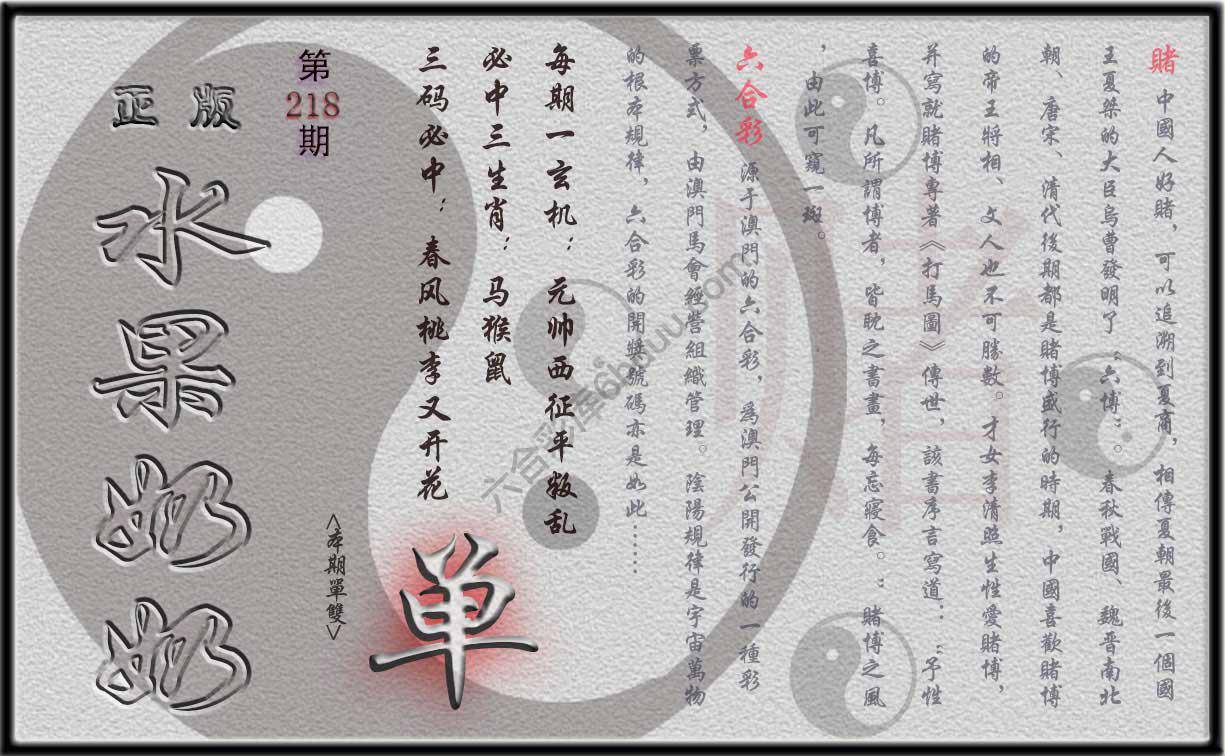 賭 中國人好賭，可以追溯到夏商，相傳夏朝最後一個國
王夏桀的大臣烏曹發明了“六博”。春秋戰國、魏晋南北
朝、唐宋、清代後期都是賭博盛行的時期，中國喜歡賭博
的帝王將相、文人也不可勝數。才女李清照生性愛賭博，
并寫就賭博專著《打馬圖》傳世，該書序言寫道：“予性
喜博。凡所謂博者，皆眈之書畫，每忘寢食。：賭博之風
，由此可窺一斑。
六合彩 源于澳門的六合彩，爲澳門公開發行的一種彩
票方式，由澳門馬會經營組織管理。陰陽規律是宇宙萬物
的根本規律，六合彩的開獎號碼亦是如此……
每期一玄机：元帅西征平叛乱
必中三生肖：马猴鼠
三码必中：春风桃李又开花
单
<本期單雙>
第
218
期
正版
水果奶奶
賭
六合彩库6huuu.com